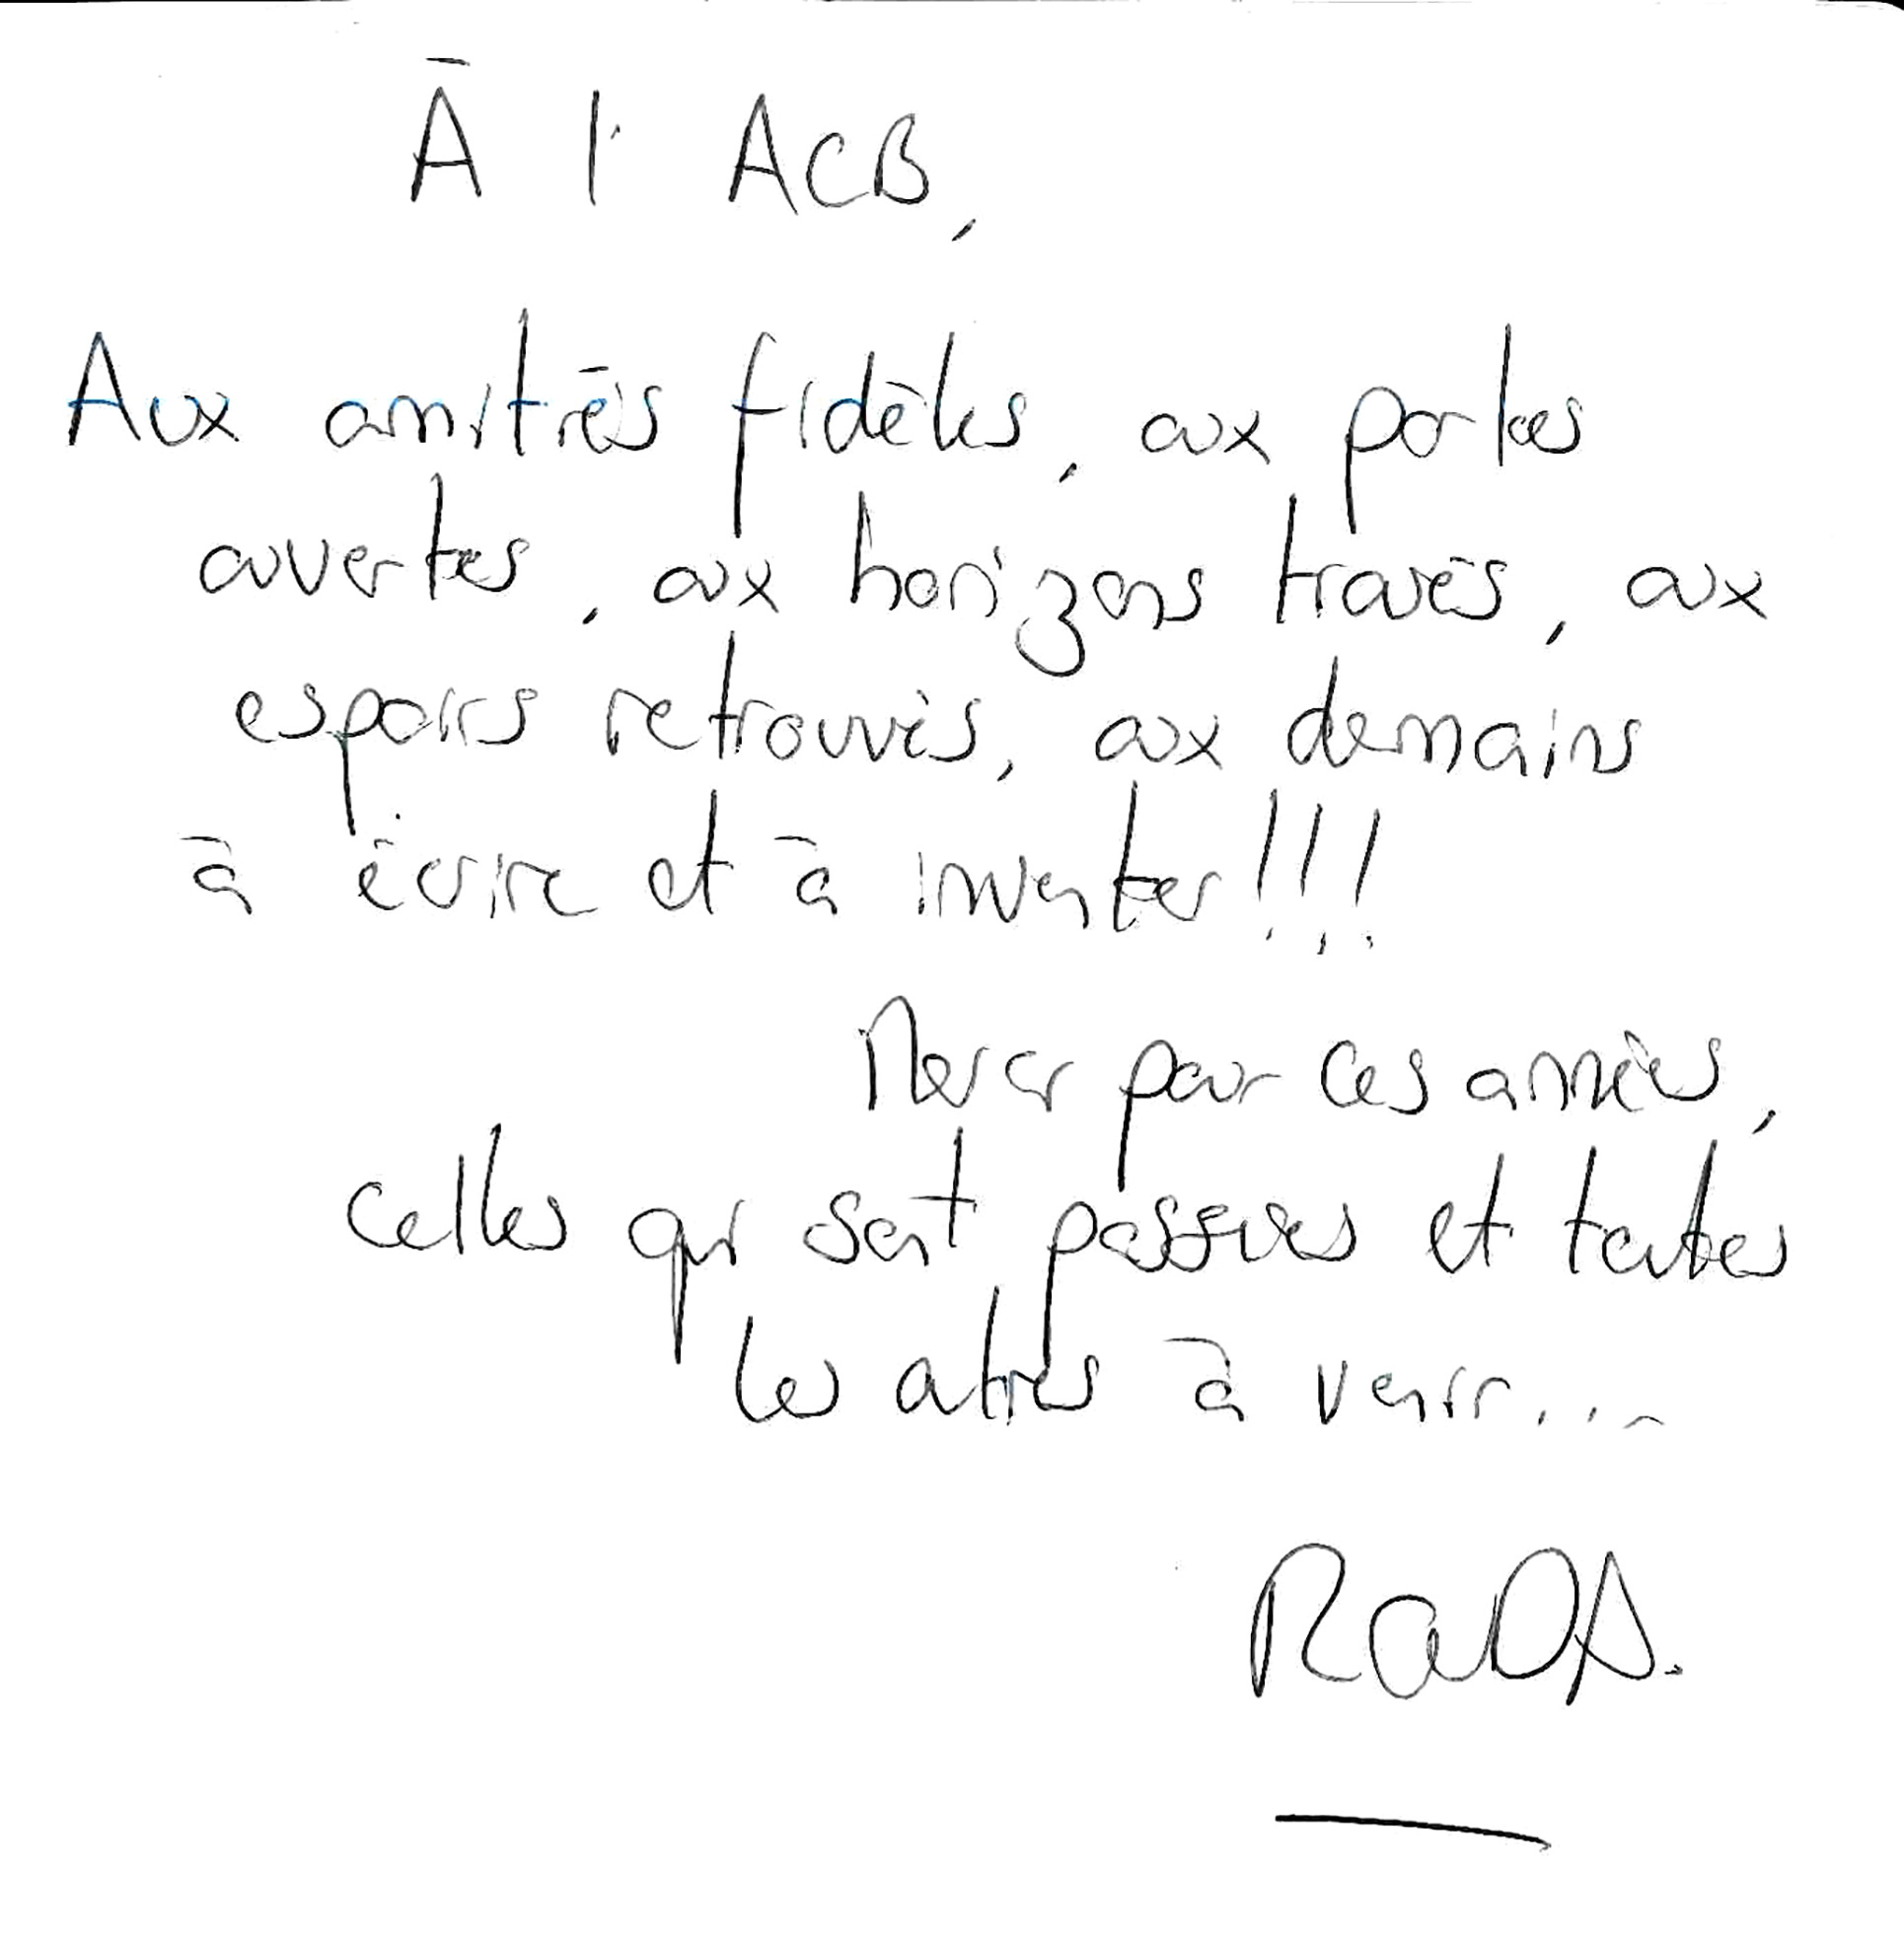 À l'ACB,
Aux amitiés fidèles, aux portes
ouvertes, aux horizons tracés, aux
espoirs retrouvés, aux demains
à écrire et à inventer!!!
Merci pour ces années,
celles qui sont passées et toutes
les autres à venir...